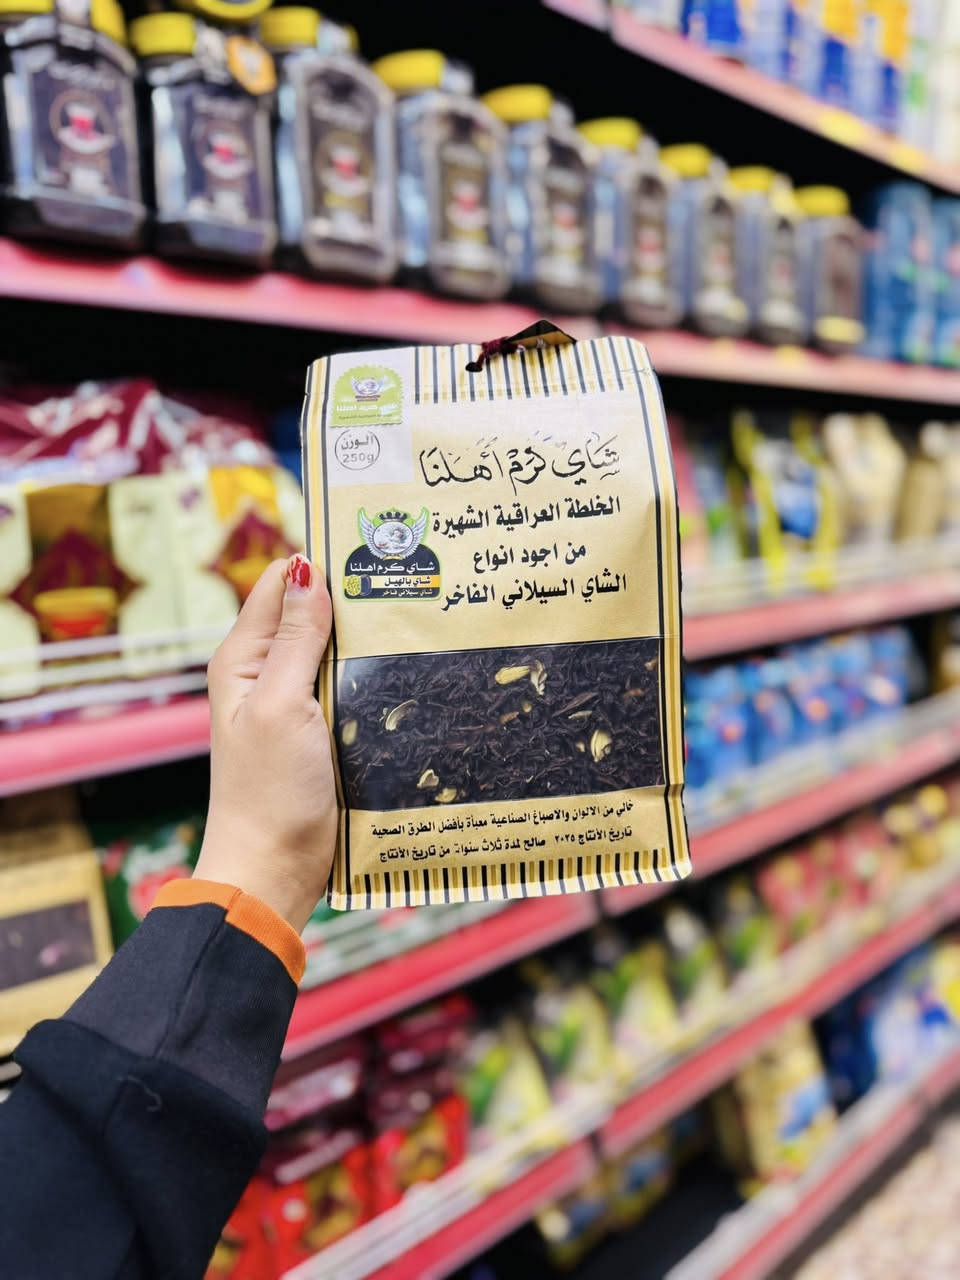 كرم اهلنا
الوزن
250g
شاي كرم أهلنا
الخلطة العراقية الشهيرة
من اجود انواع
الشاي السيلاني الفاخر
شاي كرم اهلنا
شاي بالهيل
شاي سيلاني فاخر
خالي من الالوان والاصباغ الصناعية معبأة بأفضل الطرق الصحية
تاريخ الأنتاج ٢٠٢٥ صالح لمدة ثلاث سنوات من تاريخ الأنتاج